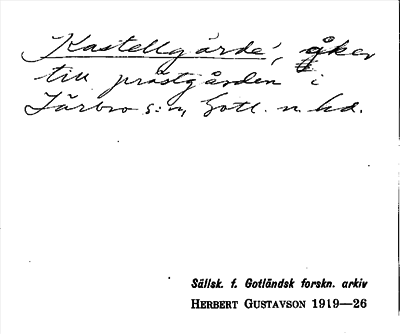 Kastellgärde', åker
till prästgården i
Lärbro s:n, Gotl. n. hd.
Sällsk. f. Gotländsk forskn. arkiv
HERBERT GUSTAVSON 1919—26